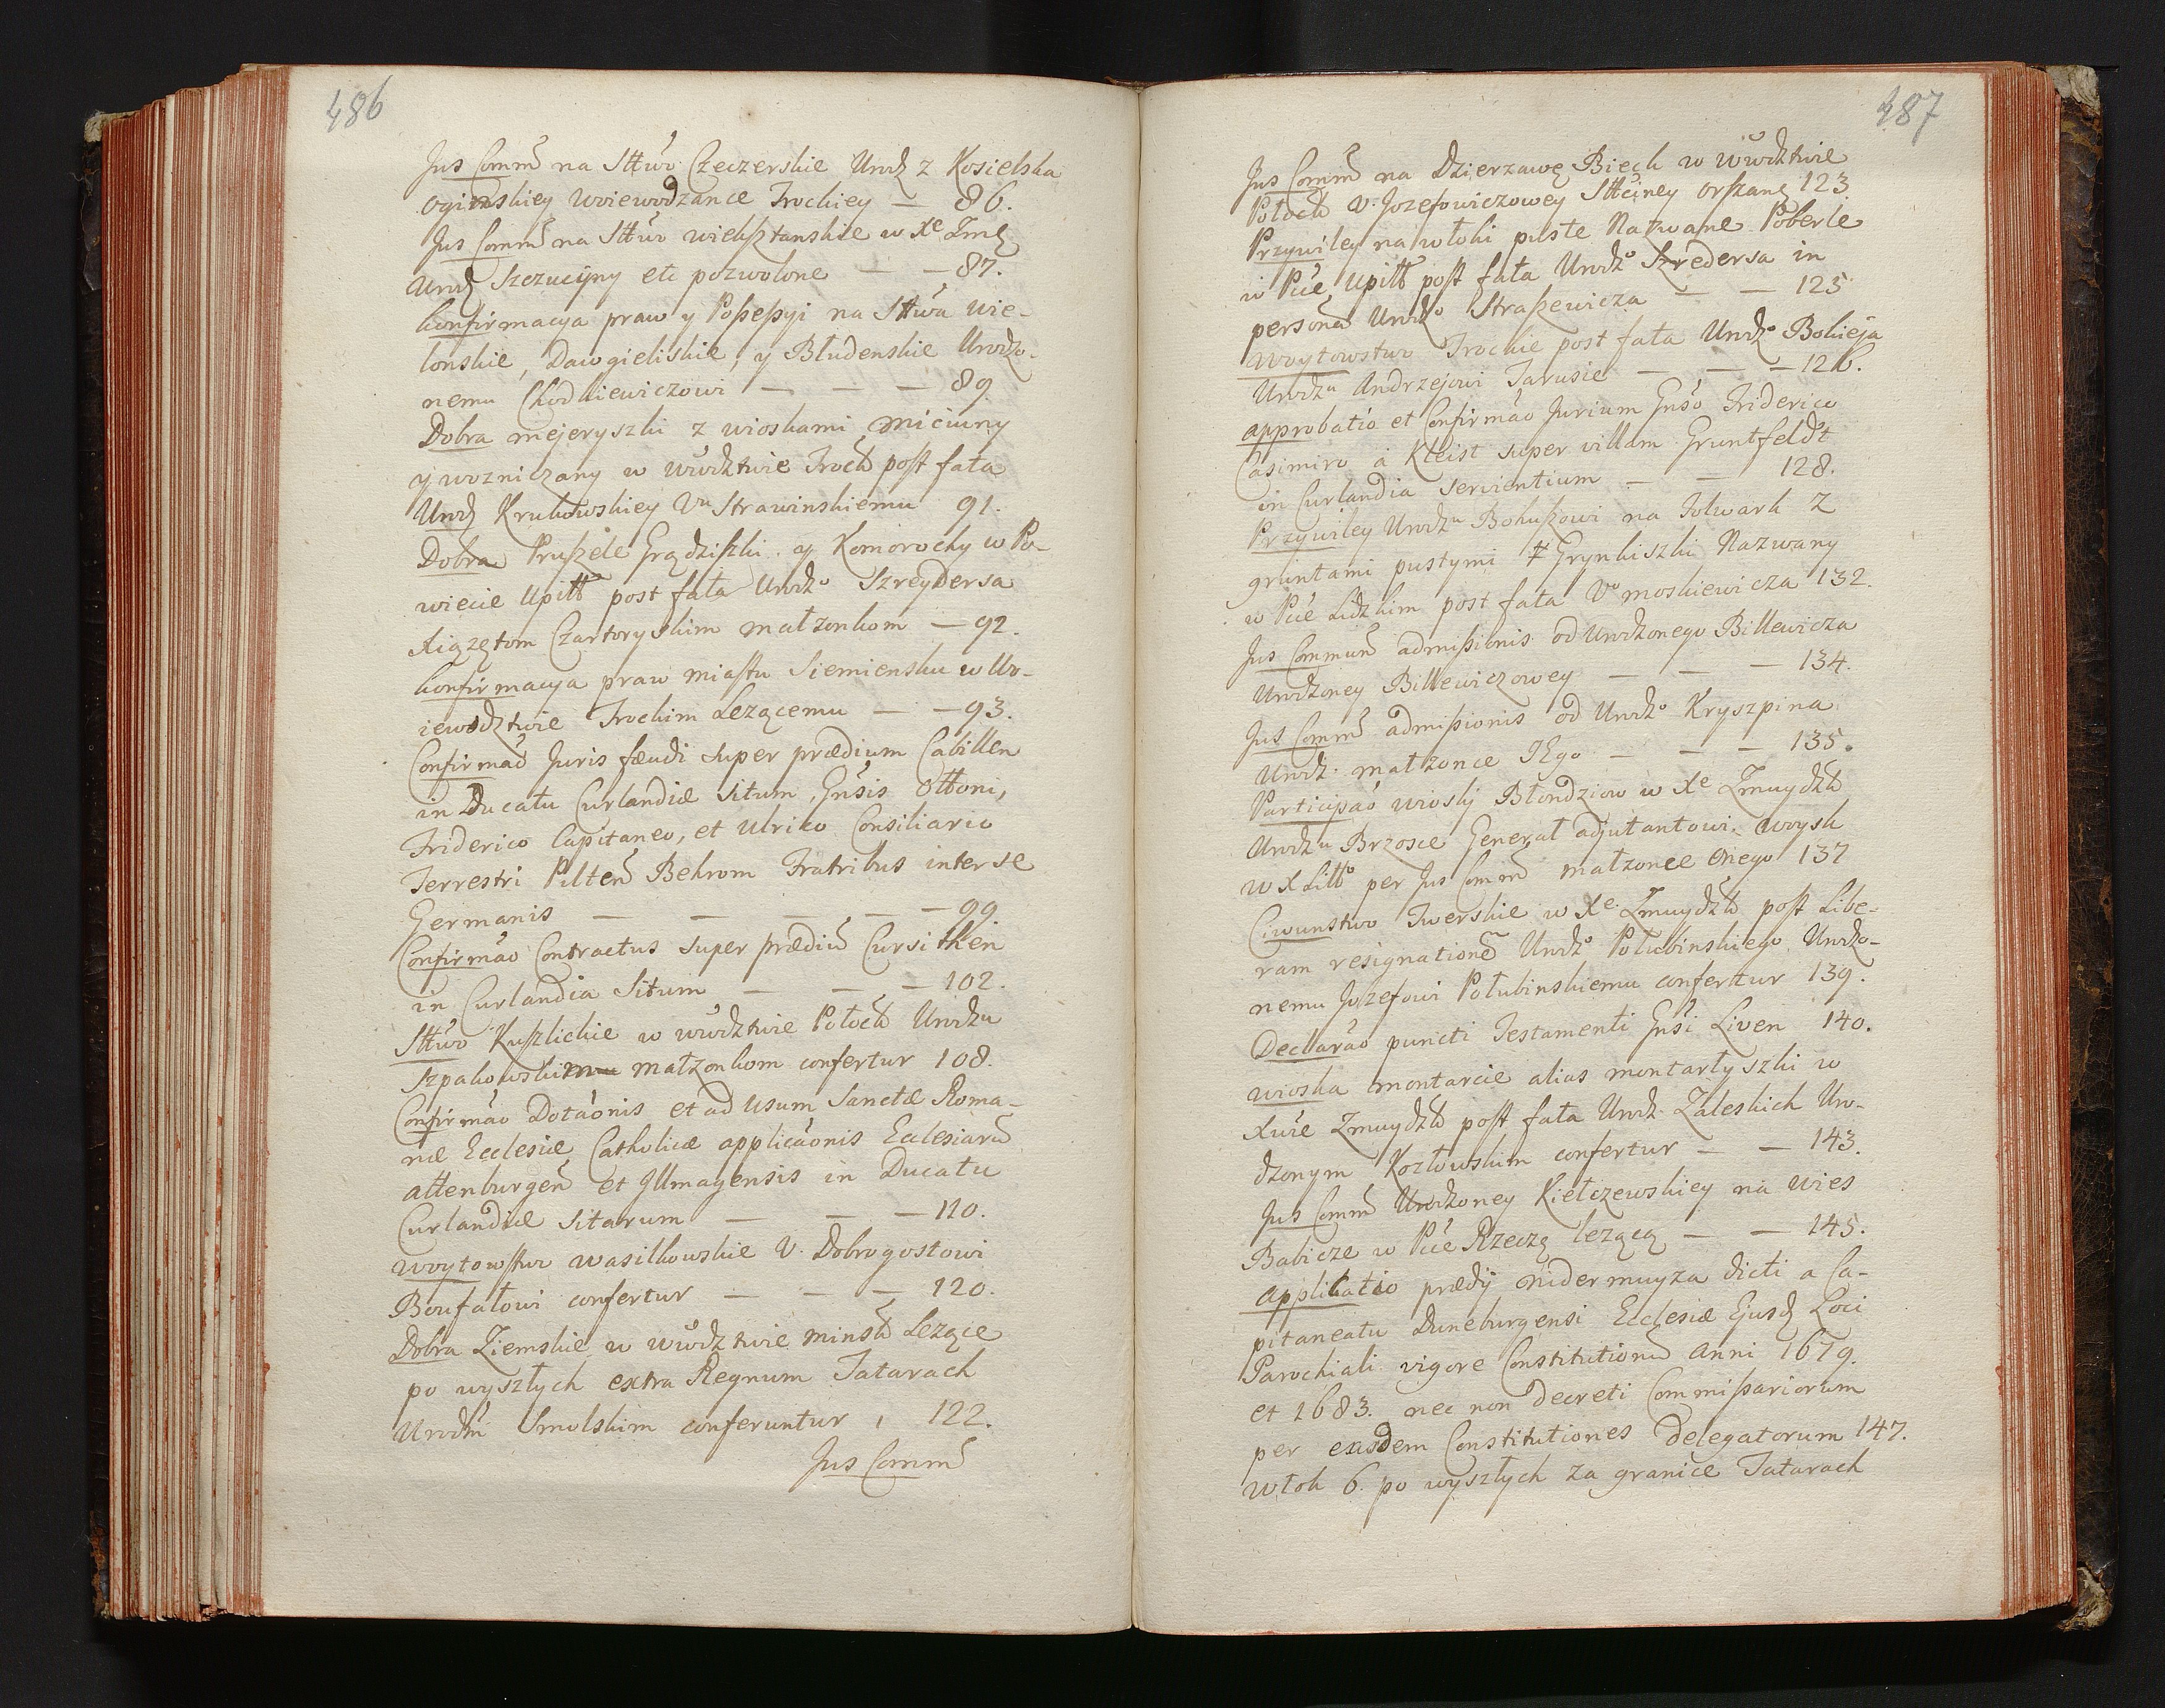 486
Jus Comm̃ na Sttwo Czeczerskie Urodz z Kosielska
Oginskiey Woiewodzance Trockiey — 86.
Jus Comm̃ na Sttwo wieksztanskie w Xe Zmu
Urodz Szczucyny etc pozwolone — — 87.
Konfirmacya praw y Poßeßyi na Sttwa Wie-
lonskie, Dawgieliskie, y Bludenskie Urodzo-
nemu Chodkiewiczowi — — — 89
Dobra mejeryszki z wioskami Miciuny
y wozniczany w Wwdztwie Trock post fata
Urodz Krukowskiey Vu Strawinskiemu 91.
Dobra Prußele Grądziszki y Komorochy w Po-
wiecie Upitt post fata Urodzo Szreydersa
Xiązętom Czartoryskim małzonkom — 92.
Konfirmacya praw miastu Siemiensku w Wo-
iewodztwie Trockim Lezącemu — — 93.
Confirmaõ Juris fæudi super prædium Cabillen
in Ducatu Curlandiæ situm, Gnsis Ottoni,
Friderico Capitaneo, et Ulrico Consiliario
Terrestri Pilteñ Behrom Fratribus inter se
Germanis — — — — — 99.
Confirmaõ Contractus super prædiũ Cursithen
in Curlandia Situm — — — 102.
Sttwo Kußlickie w wwdztwie Połock Urodzu
Szpakowskim małzonkom confertur 108.
Confirmaõ Dotaonis et ad usum Sanctæ Roma-
næ Ecclesiæ Catholicæ applicaonis Ecclesiarũ
Attenburgeñ et Jllmagensis in Ducatu
Curlandiæ Sitarum — — — 110.
Woytowstwo wasilkowskie U. Dobrogostowi
Boufałowi confertur — — — 120.
Dobra Ziemskie w wwdztwie minsk Lezące
po wyszłych extra Regnum Tatarach
Urodm Smolskim conferuntur, 122.
Jus Comm̃
487
Jus Comm̃ na Dzierzawę Biegk w wwdztwie
Połock U. Jozefowiczowey Sttciney Orßanę 123
Przywiley na włoki puste Nazwane Poberle
w Pcie Upitt post fata Urodzo Szredersa in
personã Urodzo Straßewicza — — 125
Woytowstwo Trockie post fata Urodzo Bokieja
Urodzu Andrzejowi Tarusie — — — 126.
Approbatio et Confirmaõ Jurium Gnso Friderico
Casimiro à Kleist super villam Gruntfeldt
in Curlandia servientium — — 128.
Przywiley Urodzu Bohußowi na Folwark z
gruntami pustymi Grynkiszki Nazwany
w Pcie Lidzkim post fata Vo moskiewicza 132.
Jus Commuñ admißionis od Urodzonego Billewicza
Urodzoney Billewiczowey — — — 134.
Jus Comm̃ admißionis od Urodzo Kryszpina
Urodz. małzonce Jego — — — 135.
Participaõ wioski Błondziow w Xe Zmuydzk
Urodzu Brzosce Generał adjutantowi woysk
w X Litto per Jus Comm̃ małzonce Onego 137
Ciwunstwo Twerskie w Xe Zmuydzk post Libe-
ram resignationẽ Urodzo Połubinskiego Urodzo-
nemu Jozefowi Połubinskiemu confertur 139.
Declaraõ puncti Testamenti Gnsi Liven 140.
wioska montarcie alias montartyszki w
Xwie Zmuydzk post fata Urodz. Zaleskich Uro-
dzonym Kozłowskim confertur — — 143.
Jus Comm̃ Urodzoney Kiełczewskiey na wies
Babicze w Pcie Rzeczę lezącą — — 145.
Applicatio prædij Nidermuyza dicti a Ca-
pitaneatu Duneburgensi Ecclesiæ Ejusd Loci
Parochiali vigore Constitutionũ Anni 1679.
et 1683. nec non decreti Commißariorum
per easdem Constitutiones Delegatorum 147.
Włok 6. po wyszłych za granice Tatarach